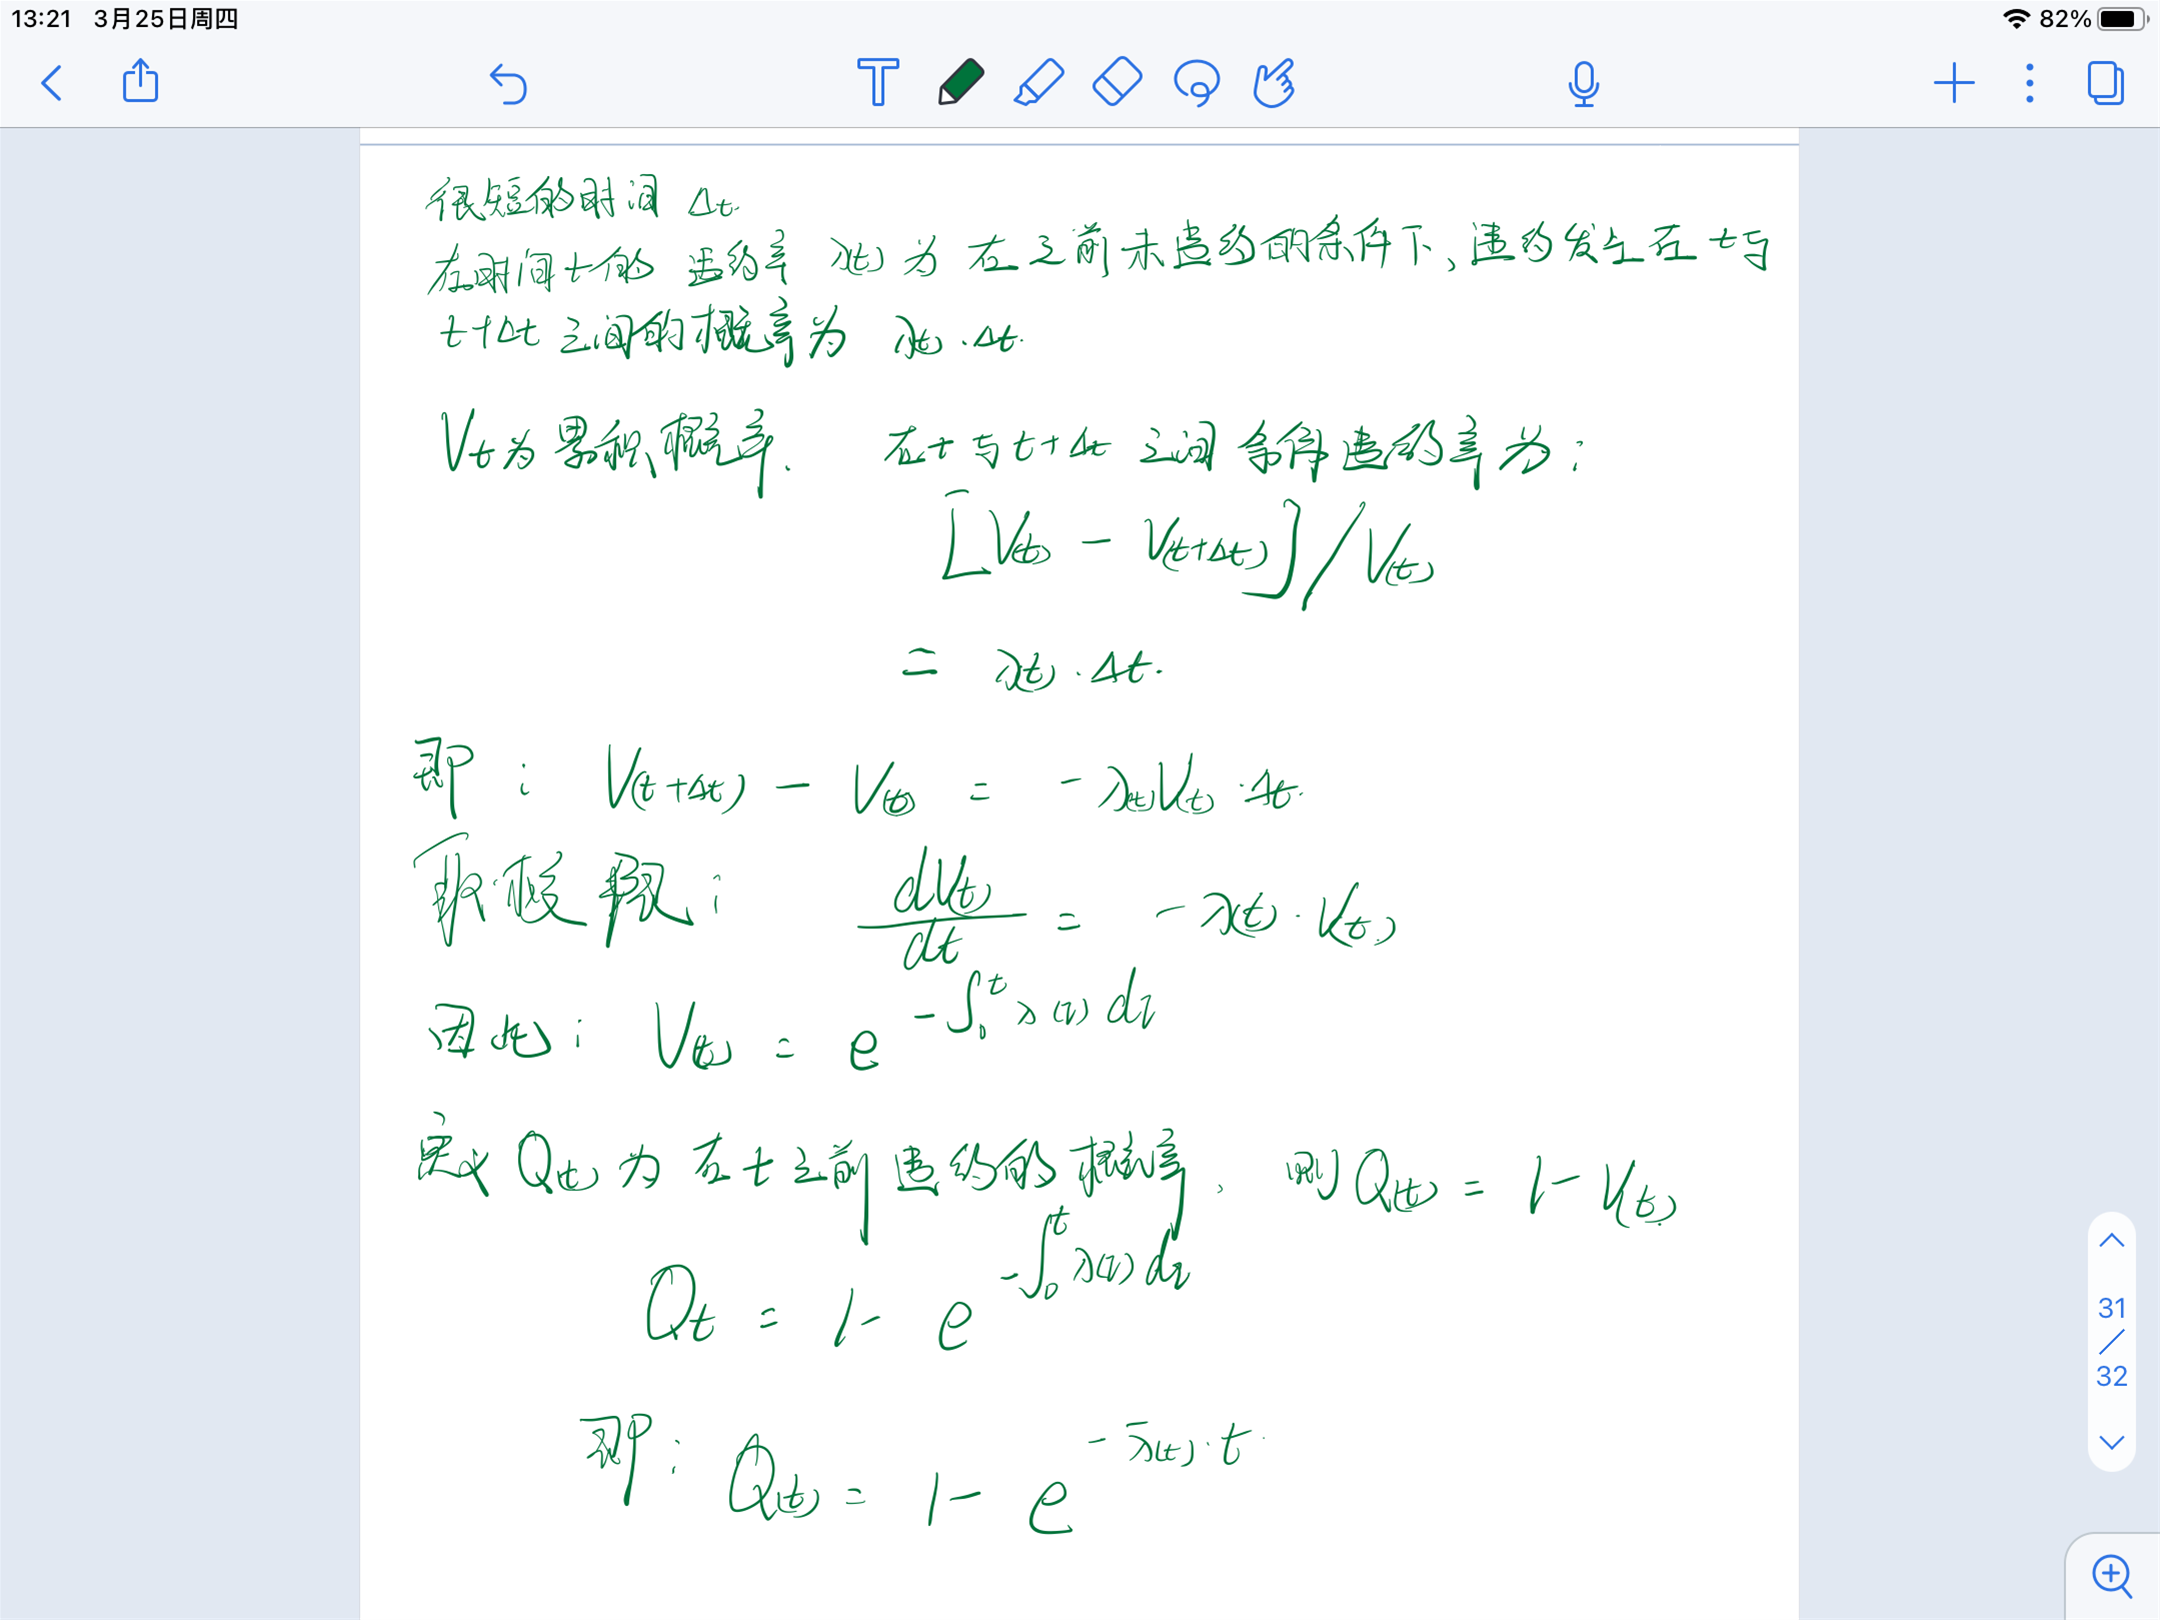 13:21 3月25日周四
82%
很短的时间 Δt.
在时间t的 违约率 λ(t) 为 在之前未违约的条件下、违约发生在 t与
t+Δt 之间的概率为 λ(t)·Δt.
Vt为累积概率. 在t与t+Δt 之间条件违约率为:
[V(t) - V(t+Δt)]/V(t)
= λ(t)·Δt.
即: V(t+Δt) - V(t) = -λ(t)V(t)·Δt.
取极限: dV(t)/dt = -λ(t)·V(t)
因此: V(t) = e^{-∫₀ᵗ λ(τ) dτ}
定义 Q(t) 为 在t之前违约的概率, 则Q(t) = 1 - V(t)
Qt = 1 - e^{-∫₀ᵗ λ(τ) dτ}
即: Q(t) = 1 - e^{-λ̄(t)·t}
31
/
32